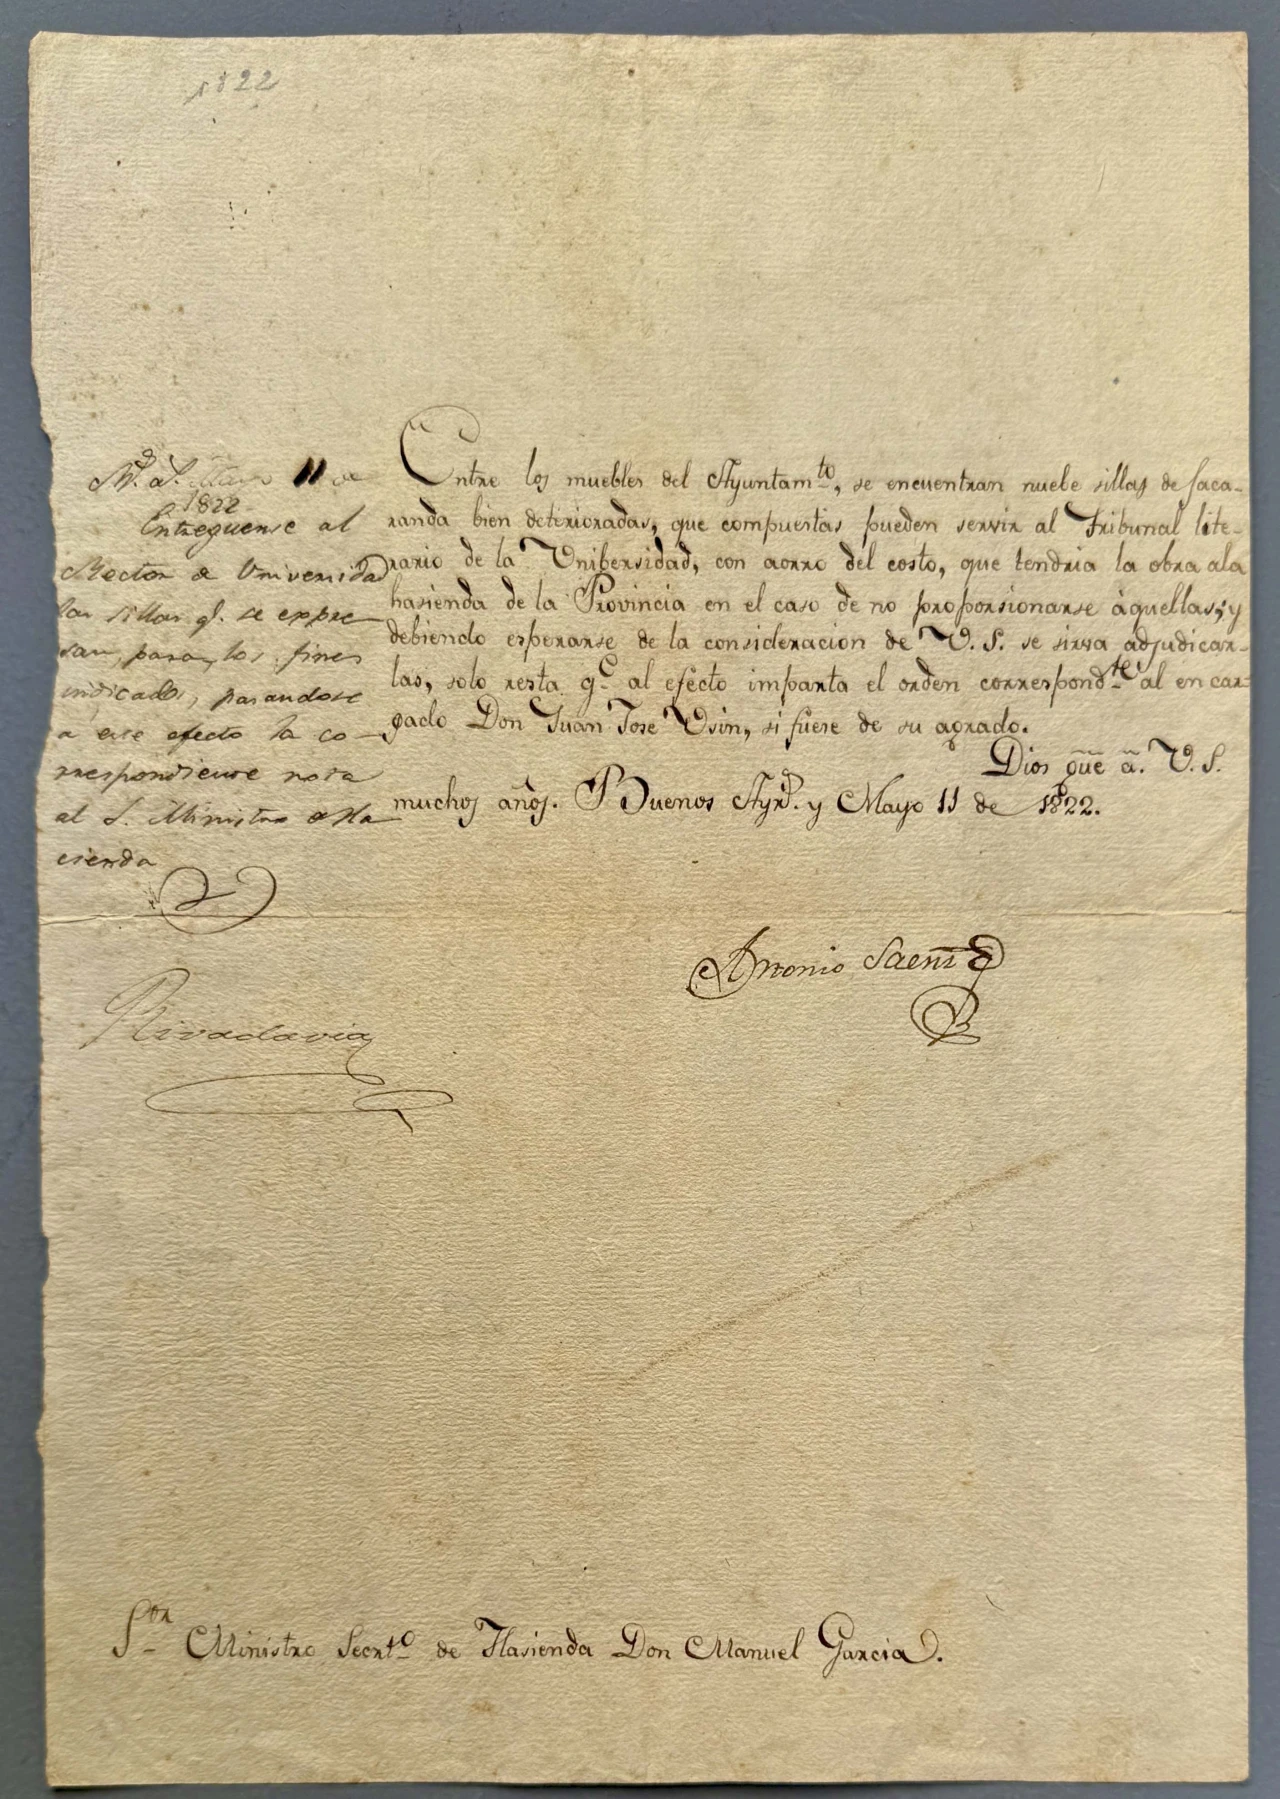 1822
Entre los muebles del Ayuntam.to, se encuentran nuebe sillas de Jaca-
randa bien deterioradas, que compuestas pueden servir al Tribunal lite-
rario de la Unibersidad, con aorro del costo, que tendria la obra ala
hasienda de la Provincia en el caso de no proporsionarse àquellas; y
debiendo esperarse de la consideracion de V. S. se sirva adjudicar-
las, solo resta q.e al efecto imparta el orden correspond.te al encar-
gado Don Juan Jose Usin, si fuere de su agrado.
Dios gue a. V. S.
muchos años. Buenos Ayr.s y Mayo 11 de 1822.
Antonio Saenz
Mayo 11 de
1822
Entreguense al
Rector de Universidad
las sillas q.e se expre
san, para los fines
indicados, pasandose
a ese efecto la co-
rrespondiente nota
al S. Ministro de Ha
cienda
Rivadavia
S.or Ministro Secrt.o de Hasienda Don Manuel Garcia.